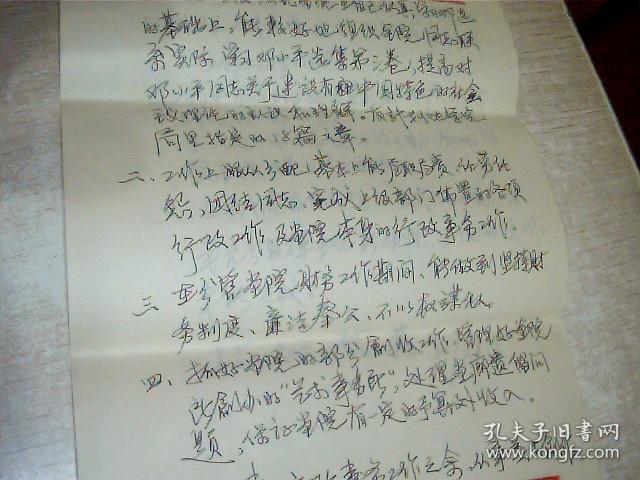 的基础上，能较好地组织全院同志联
系实际学习邓小平选集第三卷，提高对
邓小平同志关于建设有中国特色的社会
主义理论的认识和理解。
二、工作上服从分配，基本上能尽职尽责，任劳任
怨，团结同志，完成上级部门布置的各项
行政工作及画院本身的行政事务工作。
三、在分管画院财务工作期间，能做到坚持财
务制度、廉洁奉公、不以权谋私。
四、抓好画院的部分创收工作，管理好画院
所创办的"艺术事务所"，处理其所遗留问
题，保证画院有一定的预算外收入。
工作之余，
孔夫子旧书网
www.kongfz.com